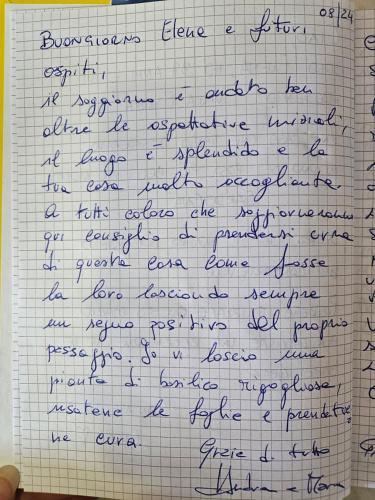 08/24
BUONGIORNO Elena e futuri
ospiti,
il soggiorno è andato ben
oltre le aspettative iniziali,
il luogo è splendido e la
tua casa molto accogliente.
A tutti coloro che soggiorneranno
qui consiglio di prendersi cura
di questa casa come fosse
la loro lasciando sempre
un segno positivo del proprio
passaggio. Io vi lascio una
pianta di basilico rigogliosa,
usatene le foglie e prendete-
ne cura.
Grazie di tutto
Andrea e